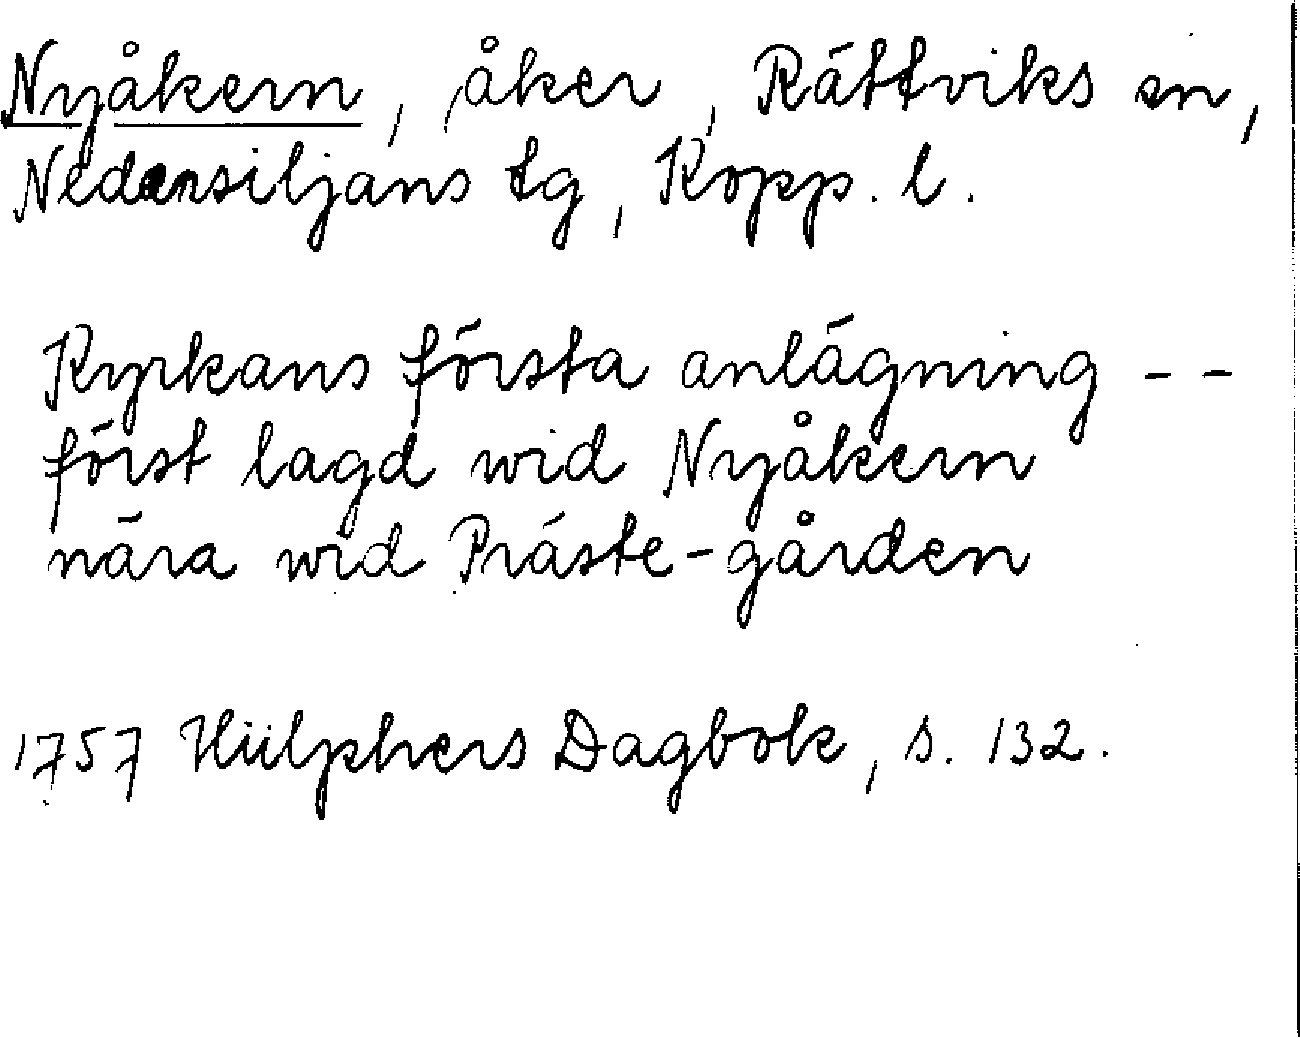 Nyåkern, åker, Rättviks sn,
Nedansiljans tg, Kopp. l.
Kyrkans första anlägning - -
först lagd wid Nyåkern
nära wid Präste-gården
1757 Hülphers Dagbok, s. 132.